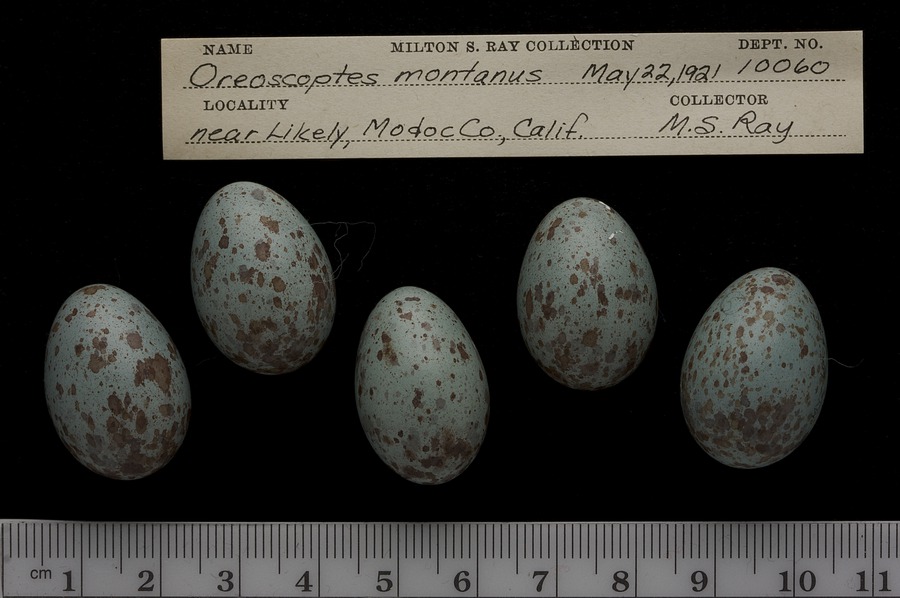 NAME MILTON S. RAY COLLECTION DEPT. NO.
Oreoscoptes montanus May 22, 1921 10060
LOCALITY COLLECTOR
near Likely, Modoc Co., Calif. M.S. Ray
cm 1 2 3 4 5 6 7 8 9 10 11